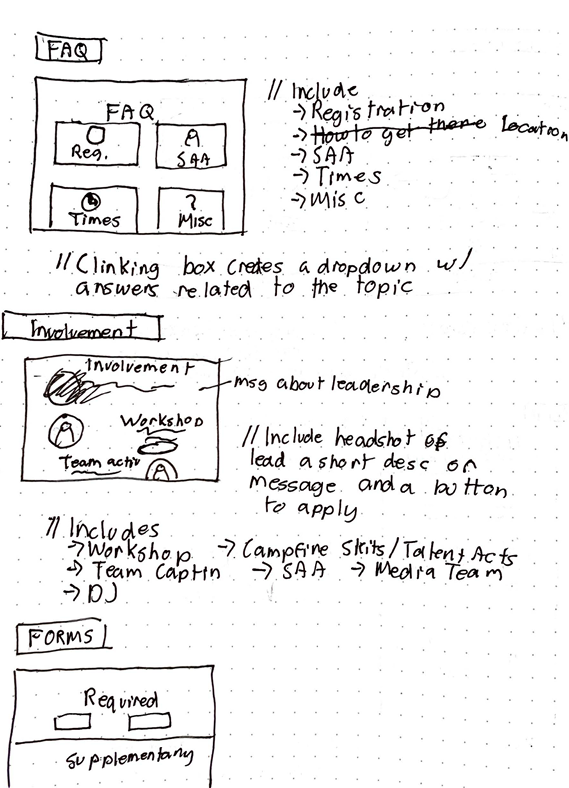 FAQ
FAQ
Reg.
SAA
Times
? Misc
// Include
→ Registration
→ How to get there Location
→ SAA
→ Times
→ Misc
// Clinking box creates a dropdown w/
answers related to the topic
Involvement
Involvement
msg about leadership
Workshop
Team activ
// Include headshot of
lead a short desc or
message and a button
to apply
// Includes
→ Workshop → Campfire Skits/Talent Acts
→ Team Captin → SAA → Media Team
→ DJ
FORMS
Required
Supplementary